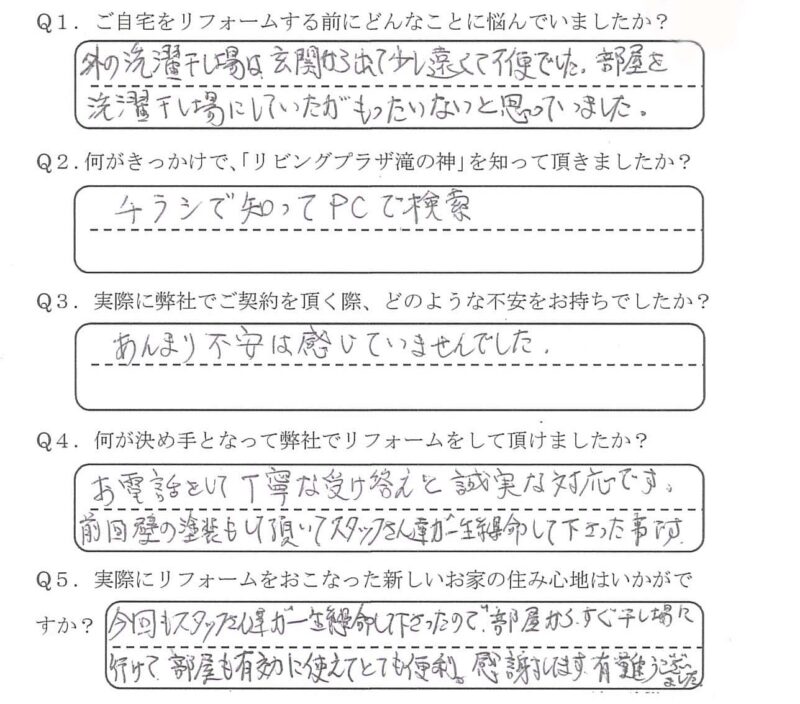 Q1．ご自宅をリフォームする前にどんなことに悩んでいましたか？
外の洗濯干し場は、玄関から出て少し遠くて不便でした。部屋を
洗濯干し場にしていたがもったいないと思っていました。
Q2．何がきっかけで、「リビングプラザ滝の神」を知って頂きましたか？
チラシで知ってPCで検索
Q3．実際に弊社でご契約を頂く際、どのような不安をお持ちでしたか？
あんまり不安は感じていませんでした。
Q4．何が決め手となって弊社でリフォームをして頂けましたか？
お電話をして丁寧な受け答えと誠実な対応です。
前回壁の塗装もして頂いてスタッフさん達が一生懸命して下さった事です
Q5．実際にリフォームをおこなった新しいお家の住み心地はいかがで
すか？
今回もスタッフさん達が一生懸命して下さったので、部屋からすぐ干し場に
行けて部屋も有効に使えてとても便利。感謝します。有難うございました